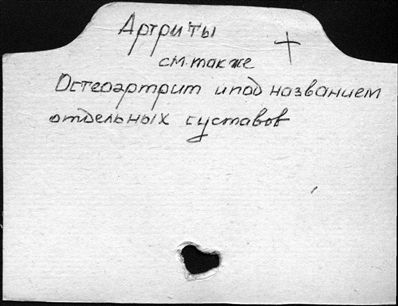 Артриты
см. также
Остеоартрит и под названием
отдельных суставов